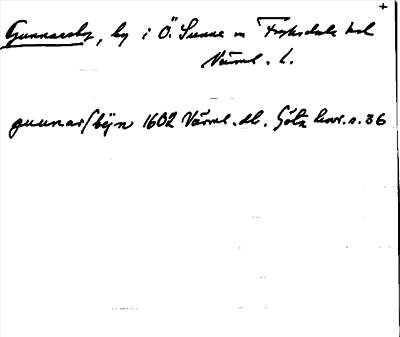 +
Gunnarsby, by i Ö. Sunne sn Fryksdals hd
Värml. l.
gunnarsbÿn 1602 Värml. db. Göta hovr. s. 36